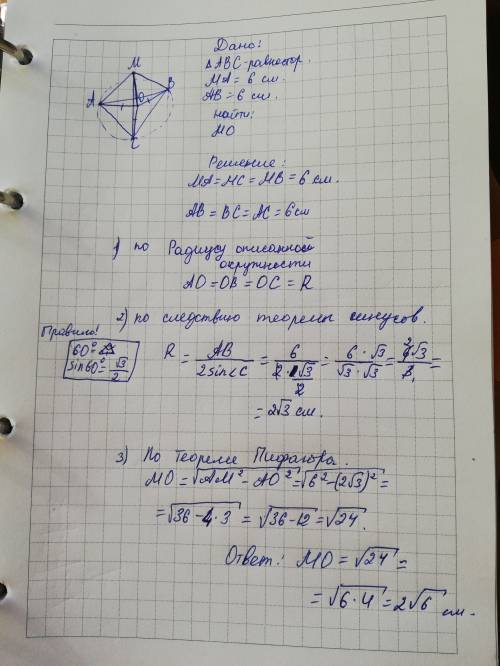 Дано:
△ABC-равностор.
MA = 6 см.
AB = 6 см.
найти:
MO
M
B
A
O
C
Решение:
MA = MC = MB = 6 см.
AB = BC = AC = 6 см
1) по Радиусу описанной
окружности
AO = OB = OC = R
2) по следствию теоремы синусов.
Правило!
60°=
sin60° = √3/2
R = AB/2sin∠C = 6/(2·1√3/2) = 6·√3/√3·√3 = 6√3/3 =
= 2√3 см.
3) По Теореме Пифагора.
MO = √AM² - AO² = √6² - (2√3)² =
= √36 - 4·3 = √36 - 12 = √24.
Ответ: MO = √24 =
= √6·4 = 2√6 см.